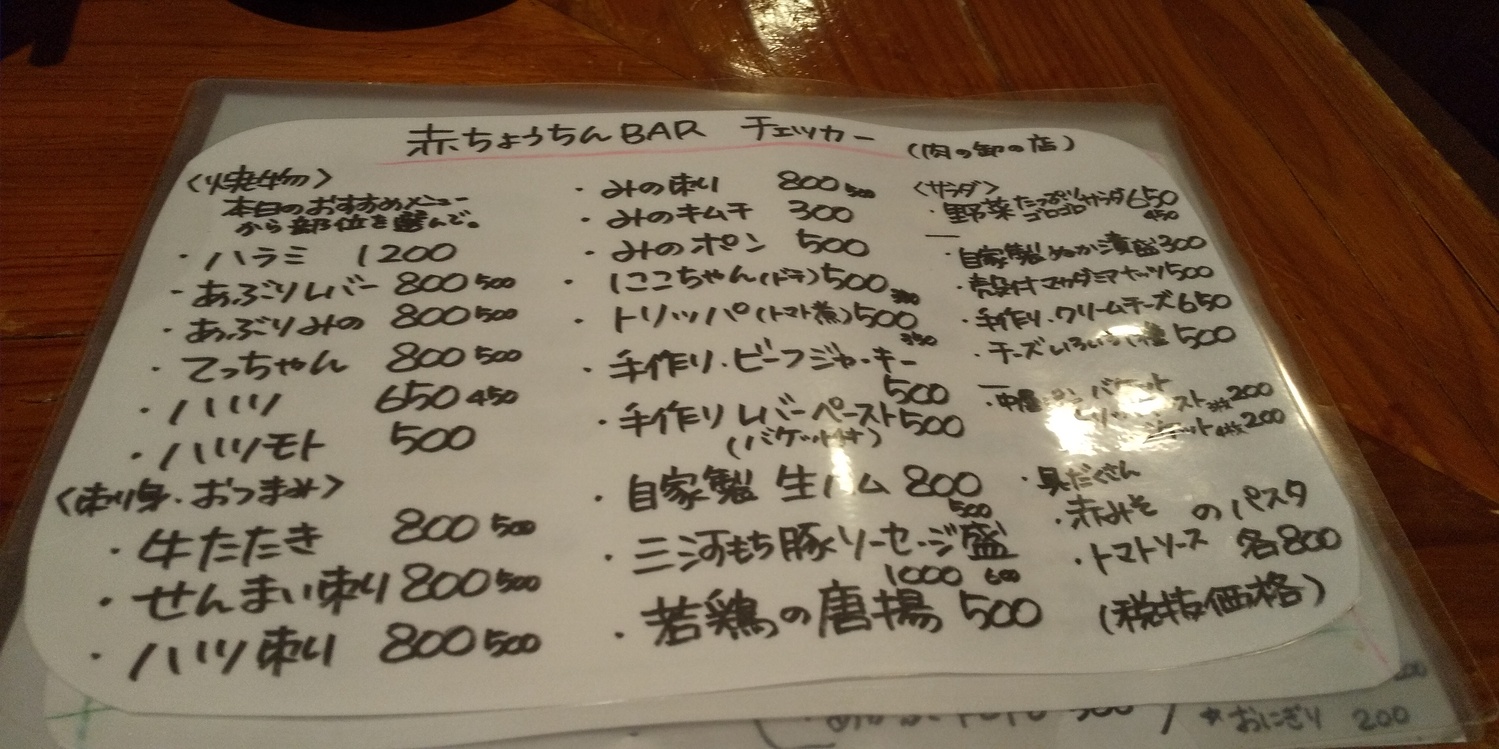 赤ちょうちんBAR チェッカー (肉の卸の店)
〈焼物〉
本日のおすすめメニュー
から部位を選んで。
・ハラミ 1200
・あぶりレバー 800 500
・あぶりみの 800 500
・てっちゃん 800 500
・ハツ 650 450
・ハツモト 500
〈刺り身・おつまみ〉
・牛たたき 800 500
・せんまい刺り 800 500
・ハツ刺り 800 500
・みの刺り 800 500
・みのキムチ 300
・みのポン 500
・にこちゃん(ドテ)500 300
・トリッパ(トマト煮)500 350
・手作り・ビーフジャーキー
500
・手作りレバーペースト500
(バケット付)
・自家製 生ハム 800
500
・三河もち豚ソーセージ盛
1000 600
・若鶏の唐揚 500
〈サラダ〉
・野菜たっぷりゴロゴロサラダ650
450
・自家製ぬか漬盛300
・殻付マカダミアナッツ500
・手作り・クリームチーズ650
・チーズいろいろ 種 500
バケット
スト 200
ット4枚200
・具だくさん
・赤みそ のパスタ
・トマトソース 各800
(税抜価格)
*おにぎり 200